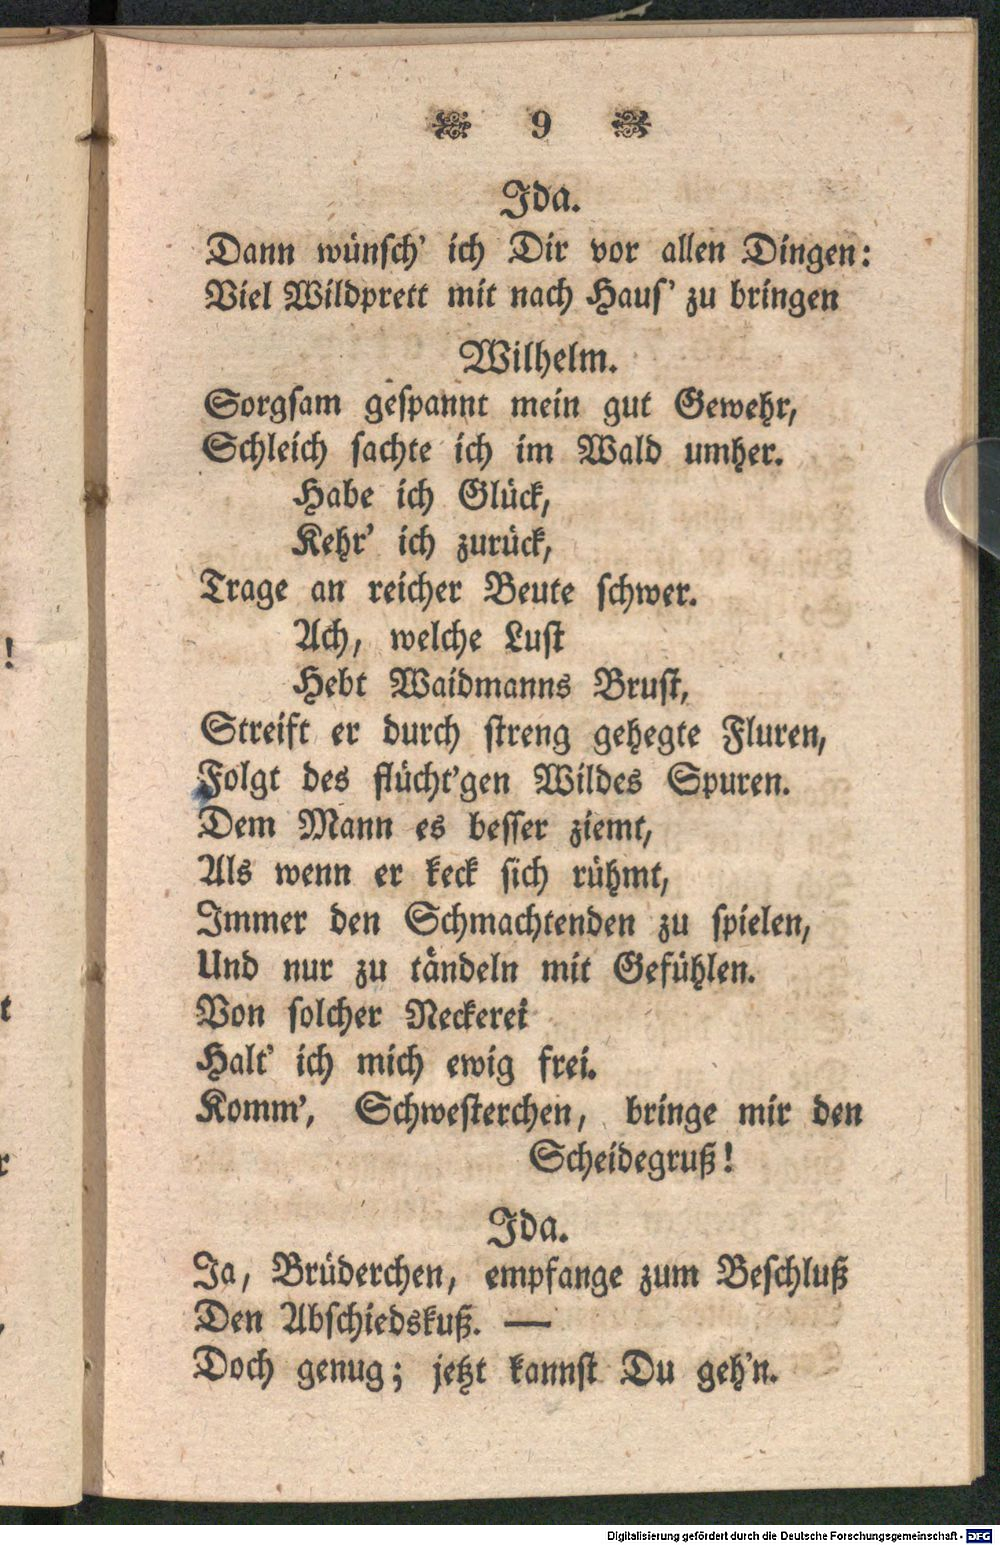 9
Ida.
Dann wünsch' ich Dir vor allen Dingen:
Viel Wildprett mit nach Haus' zu bringen
Wilhelm.
Sorgsam gespannt mein gut Gewehr,
Schleich sachte ich im Wald umher.
Habe ich Glück,
Kehr' ich zurück,
Trage an reicher Beute schwer.
Ach, welche Lust
Hebt Waidmanns Brust,
Streift er durch streng gehegte Fluren,
Folgt des flücht'gen Wildes Spuren.
Dem Mann es besser ziemt,
Als wenn er keck sich rühmt,
Immer den Schmachtenden zu spielen,
Und nur zu tändeln mit Gefühlen.
Von solcher Neckerei
Halt' ich mich ewig frei.
Komm', Schwesterchen, bringe mir den
Scheidegruß!
Ida.
Ja, Brüderchen, empfange zum Beschluß
Den Abschiedskuß. —
Doch genug; jetzt kannst Du geh'n.
Digitalisierung gefördert durch die Deutsche Forschungsgemeinschaft - DFG